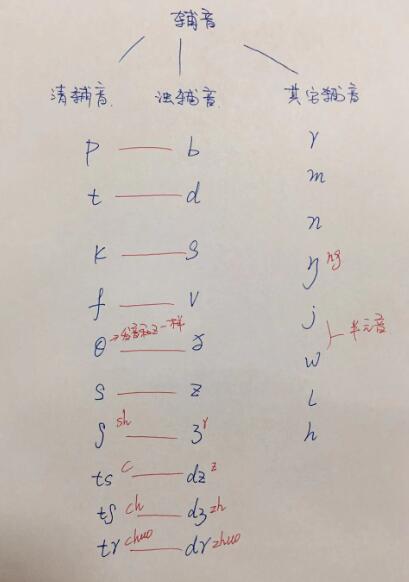 辅音
清辅音 浊辅音 其它辅音
p — b r
t — d m
k — g n
f — v ŋ ng
θ →发音和z一样 — ð j
s — z w 半元音
ʃ sh — ʒ r l
ts c — dz z h
tʃ ch — dʒ zh
tr chuo — dr zhuo